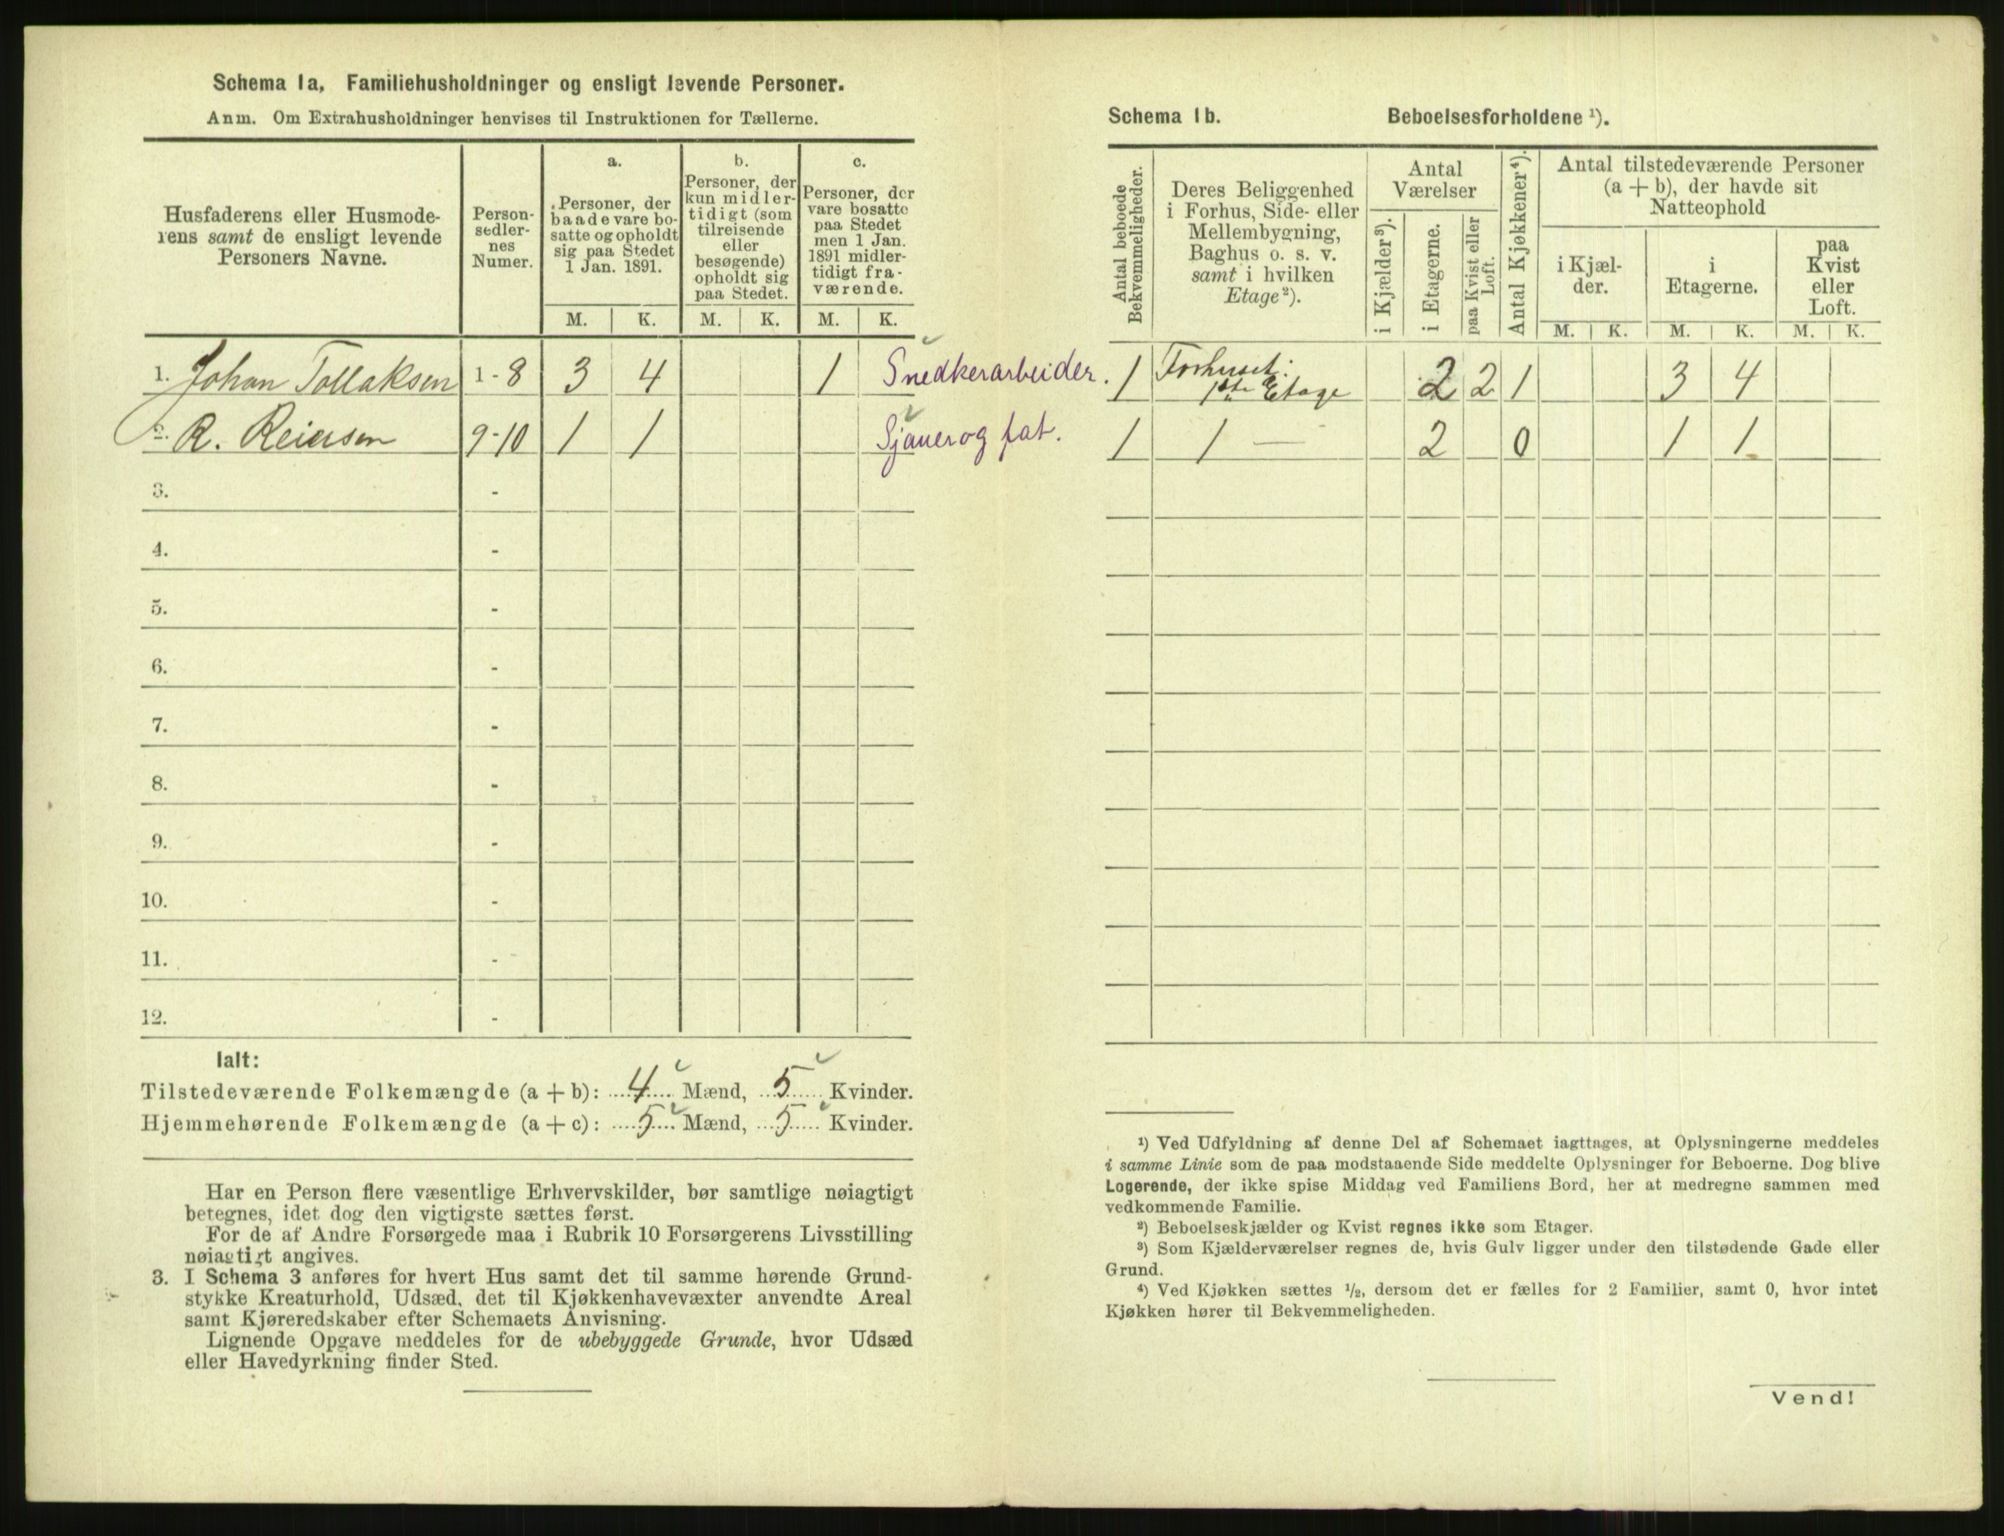 Schema 1a, Familiehusholdninger og ensligt levende Personer.
Anm. Om Extrahusholdninger henvises til Instruktionen for Tællerne.
Husfaderens eller Husmode-
rens samt de ensligt levende
Personers Navne.
Person-
sedler-
nes
Numer.
a.
Personer, der
baade vare bo-
satte og opholdt
sig paa Stedet
1 Jan. 1891.
b.
Personer, der
kun midler-
tidigt (som
tilreisende
eller
besøgende)
opholdt sig
paa Stedet.
c.
Personer, der
vare bosatte
paa Stedet
men 1 Jan.
1891 midler-
tidigt fra-
værende.
M. K. M. K. M. K.
1. Johan Tollaksen 1-8 3 4 1 Snedkerarbeider.
2. R. Reiersen 9-10 1 1 Sjauer og fat.
3. -
4. -
5. -
6. -
7. -
8. -
9. -
10. -
11. -
12. -
Ialt:
Tilstedeværende Folkemængde (a + b): 4 Mænd, 5 Kvinder.
Hjemmehørende Folkemængde (a + c): 5 Mænd, 5 Kvinder.
Har en Person flere væsentlige Erhvervskilder, bør samtlige nøiagtigt
betegnes, idet dog den vigtigste sættes først.
For de af Andre Forsørgede maa i Rubrik 10 Forsørgerens Livsstilling
nøiagtigt angives.
3. I Schema 3 anføres for hvert Hus samt det til samme hørende Grund-
stykke Kreaturhold, Udsæd, det til Kjøkkenhavevæxter anvendte Areal
samt Kjøreredskaber efter Schemaets Anvisning.
Lignende Opgave meddeles for de ubebyggede Grunde, hvor Udsæd
eller Havedyrkning finder Sted.
Schema 1b. Beboelsesforholdene ¹).
Antal beboede
Bekvemmeligheder.
Deres Beliggenhed
i Forhus, Side- eller
Mellembygning,
Baghus o. s. v.
samt i hvilken
Etage²).
Antal
Værelser
i Kjælder³).
i Etagerne.
paa Kvist eller
Loft.
Antal Kjøkkener⁴).
Antal tilstedeværende Personer
(a + b), der havde sit
Natteophold
i Kjæl-
der.
i
Etagerne.
paa
Kvist
eller
Loft.
M. K. M. K. M. K.
1 Forhuset: 1ste Etage 2 2 1 3 4
1 1 — 2 0 1 1
¹) Ved Udfyldning af denne Del af Schemaet iagttages, at Oplysningerne meddeles
i samme Linie som de paa modstaaende Side meddelte Oplysninger for Beboerne. Dog blive
Logerende, der ikke spise Middag ved Familiens Bord, her at medregne sammen med
vedkommende Familie.
²) Beboelseskjælder og Kvist regnes ikke som Etager.
³) Som Kjælderværelser regnes de, hvis Gulv ligger under den tilstødende Gade eller
Grund.
⁴) Ved Kjøkken sættes ½, dersom det er fælles for 2 Familier, samt 0, hvor intet
Kjøkken hører til Bekvemmeligheden.
Vend!